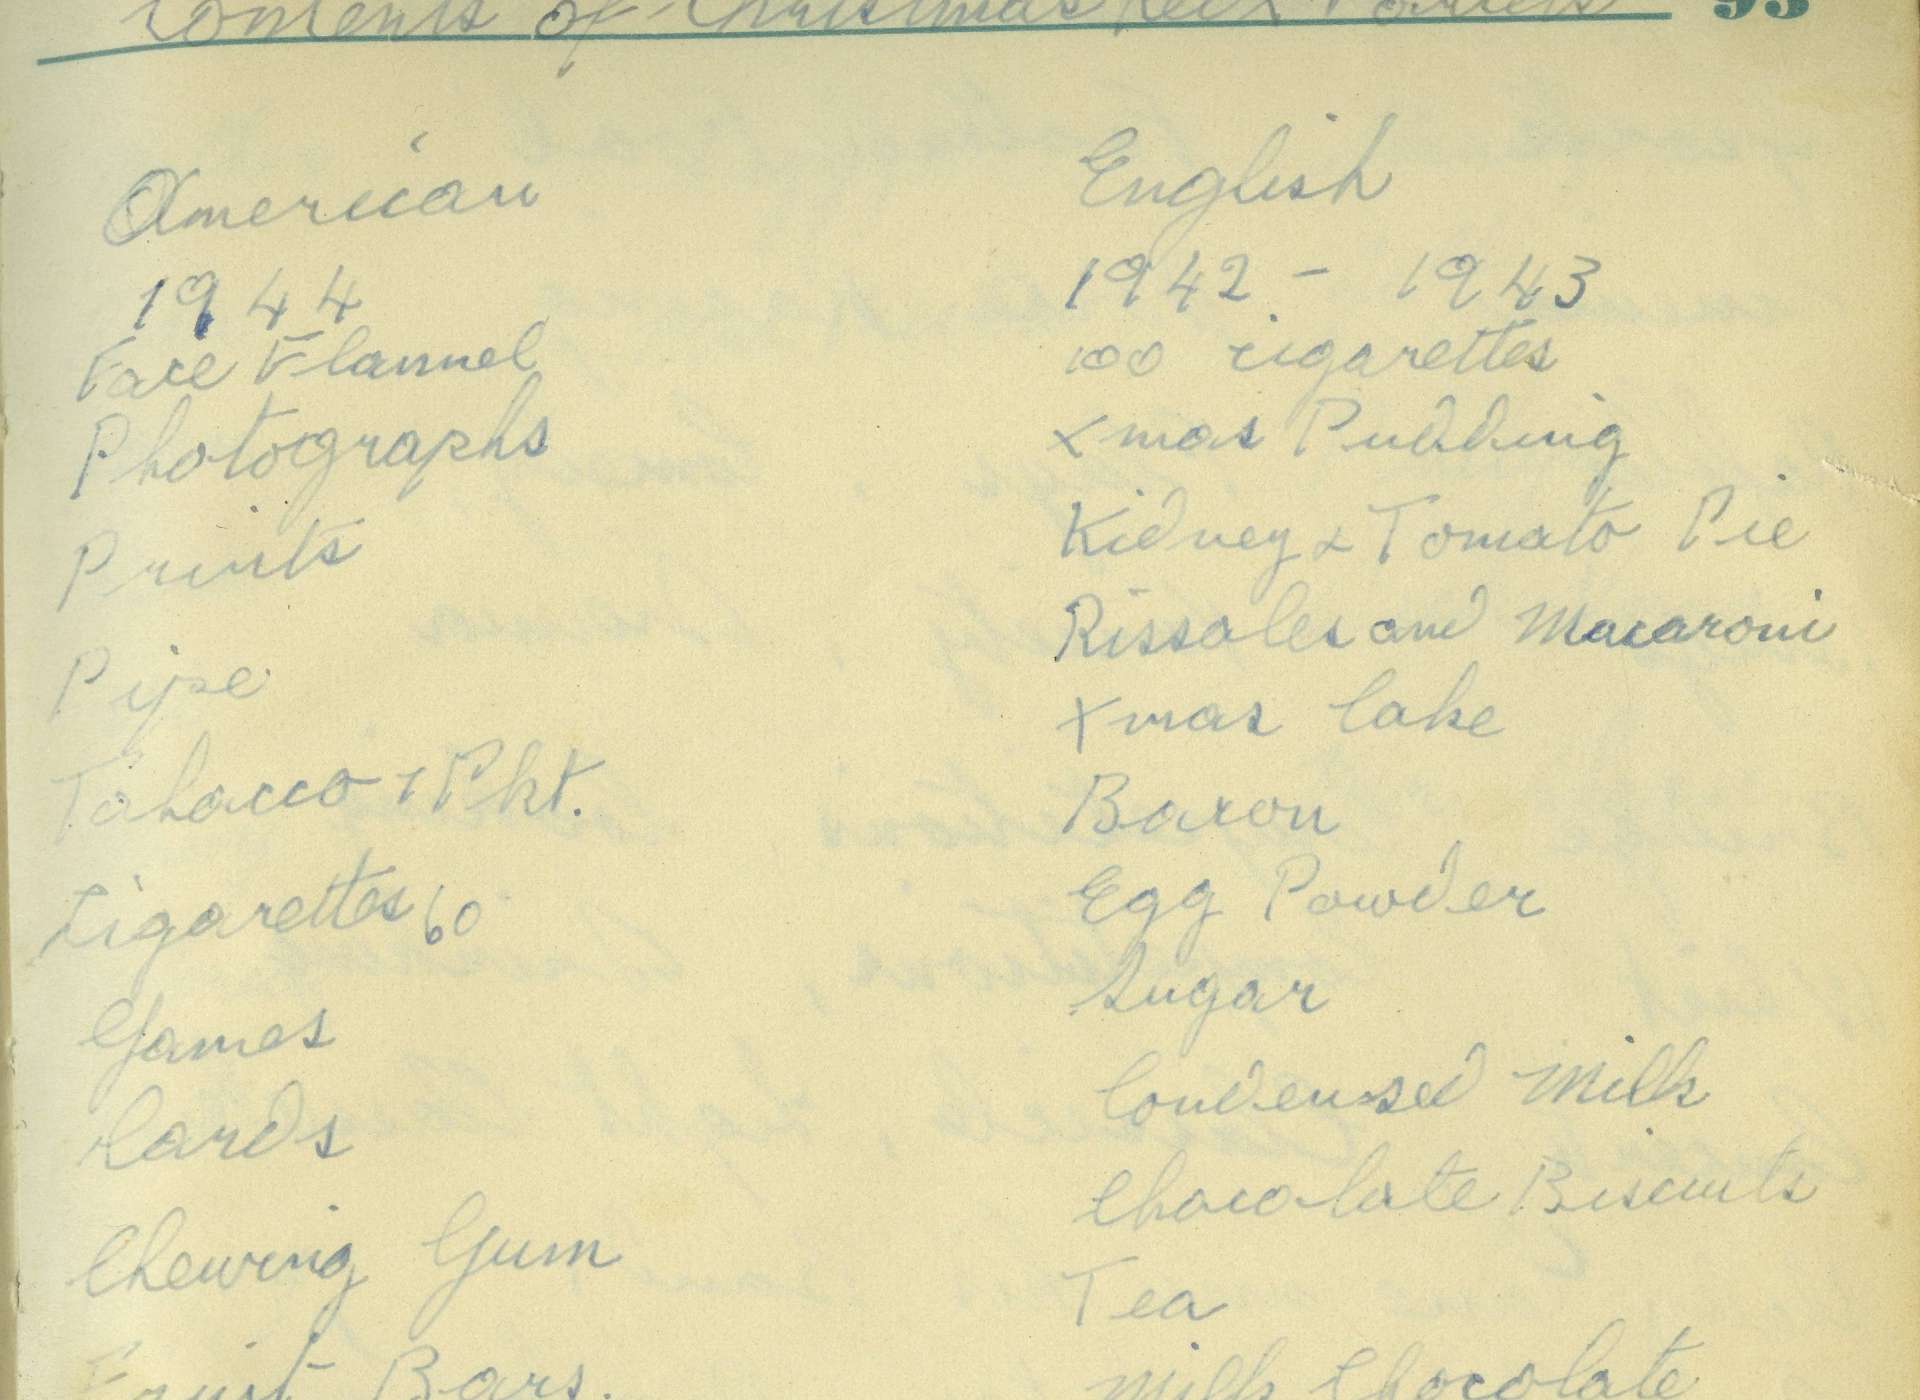 Contents of Christmas Red X Parcels 93
American
1944
Face Flannel
Photographs
Prints
Pipe
Tobacco 1 Pkt.
Cigarettes 60
Games
Cards
Chewing Gum
Fruit Bars.
English
1942 - 1943
100 cigarettes
Xmas Pudding
Kidney & Tomato Pie
Rissoles and Macaroni
Xmas Cake
Bacon
Egg Powder
Sugar
Condensed Milk
Chocolate Biscuits
Tea
Milk Chocolate